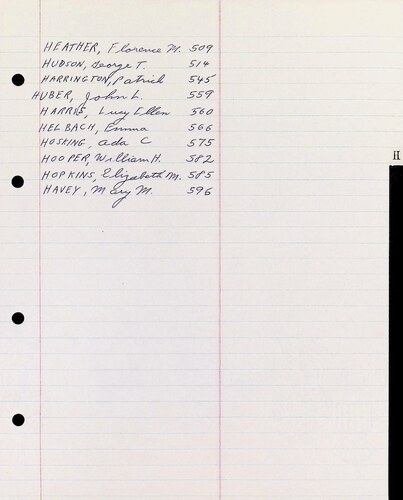 HEATHER, Florence M. 509
HUDSON, George T. 514
HARRINGTON, Patrick 545
HUBER, John L. 559
HARRIS, Lucy Ellen 560
HELBACH, Emma 566
HOSKING, Ada C 575
HOOPER, William H. 582
HOPKINS, Elizabeth M. 585
HAVEY, Mary M. 596
H